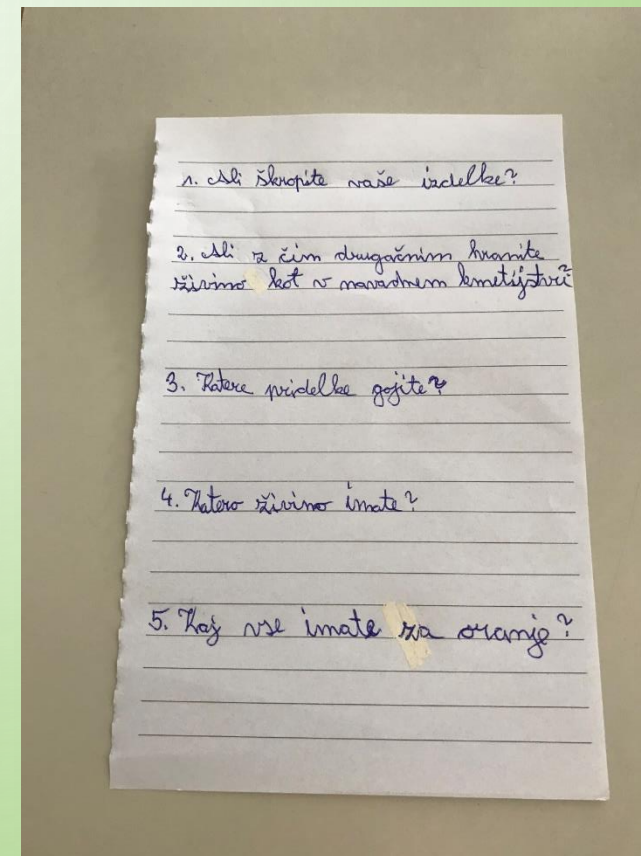 1. Ali škropite vaše izdelke?
2. Ali z čim drugačnim hranite
živino kot v navadnem kmetijstvu?
3. Katere pridelke gojite?
4. Katero živino imate?
5. Kaj vse imate za oranje?